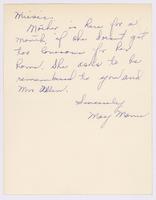 Mother is here for a
month, if she doesn't get
too lonesome for her
home. She asks to be
remembered to you and
Mrs Allen.
Sincerely
May